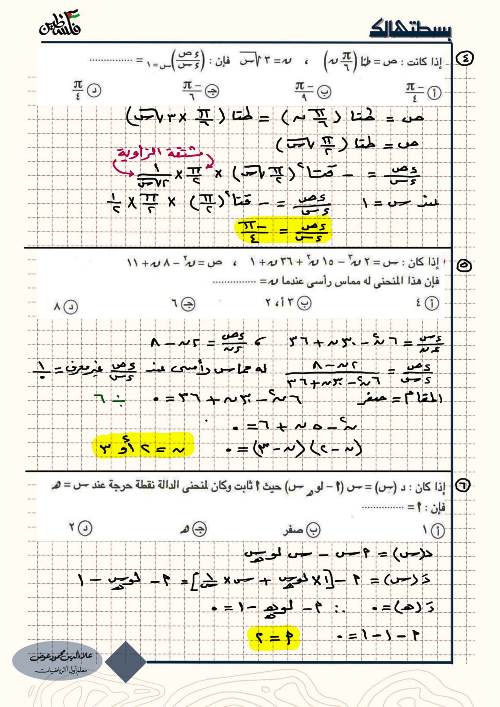 بسطتهالك
فلسطين
٤ إذا كانت : ص = ظتا (π/٦ ن) ، ن = ٣√س فإن : (ءص/ءس) س=١ = ...............
أ -π/٤ ب -π/٩ ج -π/٦ د π/٤
ص = ظتا (π/٦ ن) = ظتا (π/٦ × ٣√س)
ص = ظتا (π/٢ √س)
مشتقة الزاوية
ءص/ءس = - قتا² (π/٢ √س) × π/٢ × ١/٢√س
عند س = ١ ءص/ءس = - قتا² (π/٢) × π/٢ × ١/٢
ءص/ءس = -π/٤
٥ إذا كان : س = ٢ن³ - ١٥ن² + ٣٦ن + ١ ، ص = ن² - ٨ن + ١١
فإن هذا المنحنى له مماس رأسى عندما ن = ...............
أ ٤ ب ٣ أ، ٢ ج ٦ د ٨
ءس/ءن = ٦ن² - ٣٠ن + ٣٦ ، ءص/ءن = ٢ن - ٨
ءص/ءس = ٢ن - ٨/٦ن² - ٣٠ن + ٣٦ له مماس رأسى عند ءص/ءس غير معرف = ١/٠
المقام = صفر ٦ن² - ٣٠ن + ٣٦ = ٠ ÷ ٦
ن² - ٥ن + ٦ = ٠
(ن - ٢) (ن - ٣) = ٠ ن = ٢ أو ٣
٦ إذا كان : د (س) = س (أ - لوهـ س) حيث أ ثابت وكان لمنحنى الدالة نقطة حرجة عند س = هـ
فإن : أ = ...............
أ ١ ب صفر ج هـ د ٢
د(س) = أس - س لوهـ س
دَ(س) = أ - [١ × لوهـ س + س × ١/س] = أ - لوهـ س - ١
دَ(هـ) = ٠ ∴ أ - لوهـ هـ - ١ = ٠
أ - ١ - ١ = ٠ أ = ٢
علاء الدين محمود عوض
معلم أول الرياضيات